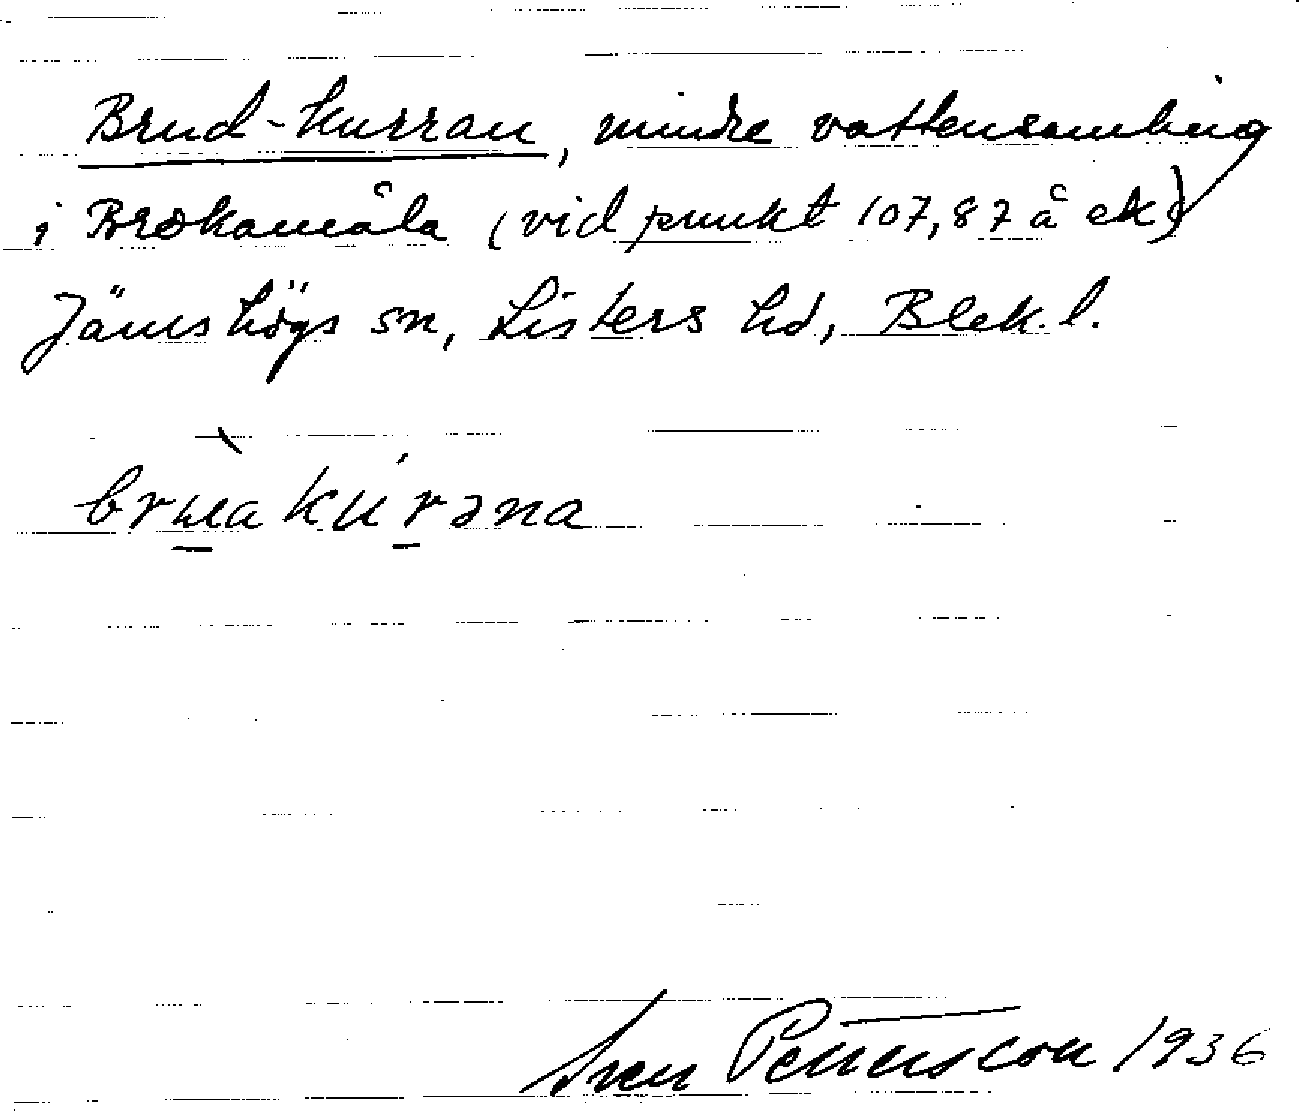 Brud-kurran, mindre vattensamling
i Brokamåla (vid punkt 107,87 å ek)
Jämshögs sn, Listers hd, Blek. l.
Sven Petersson 1936